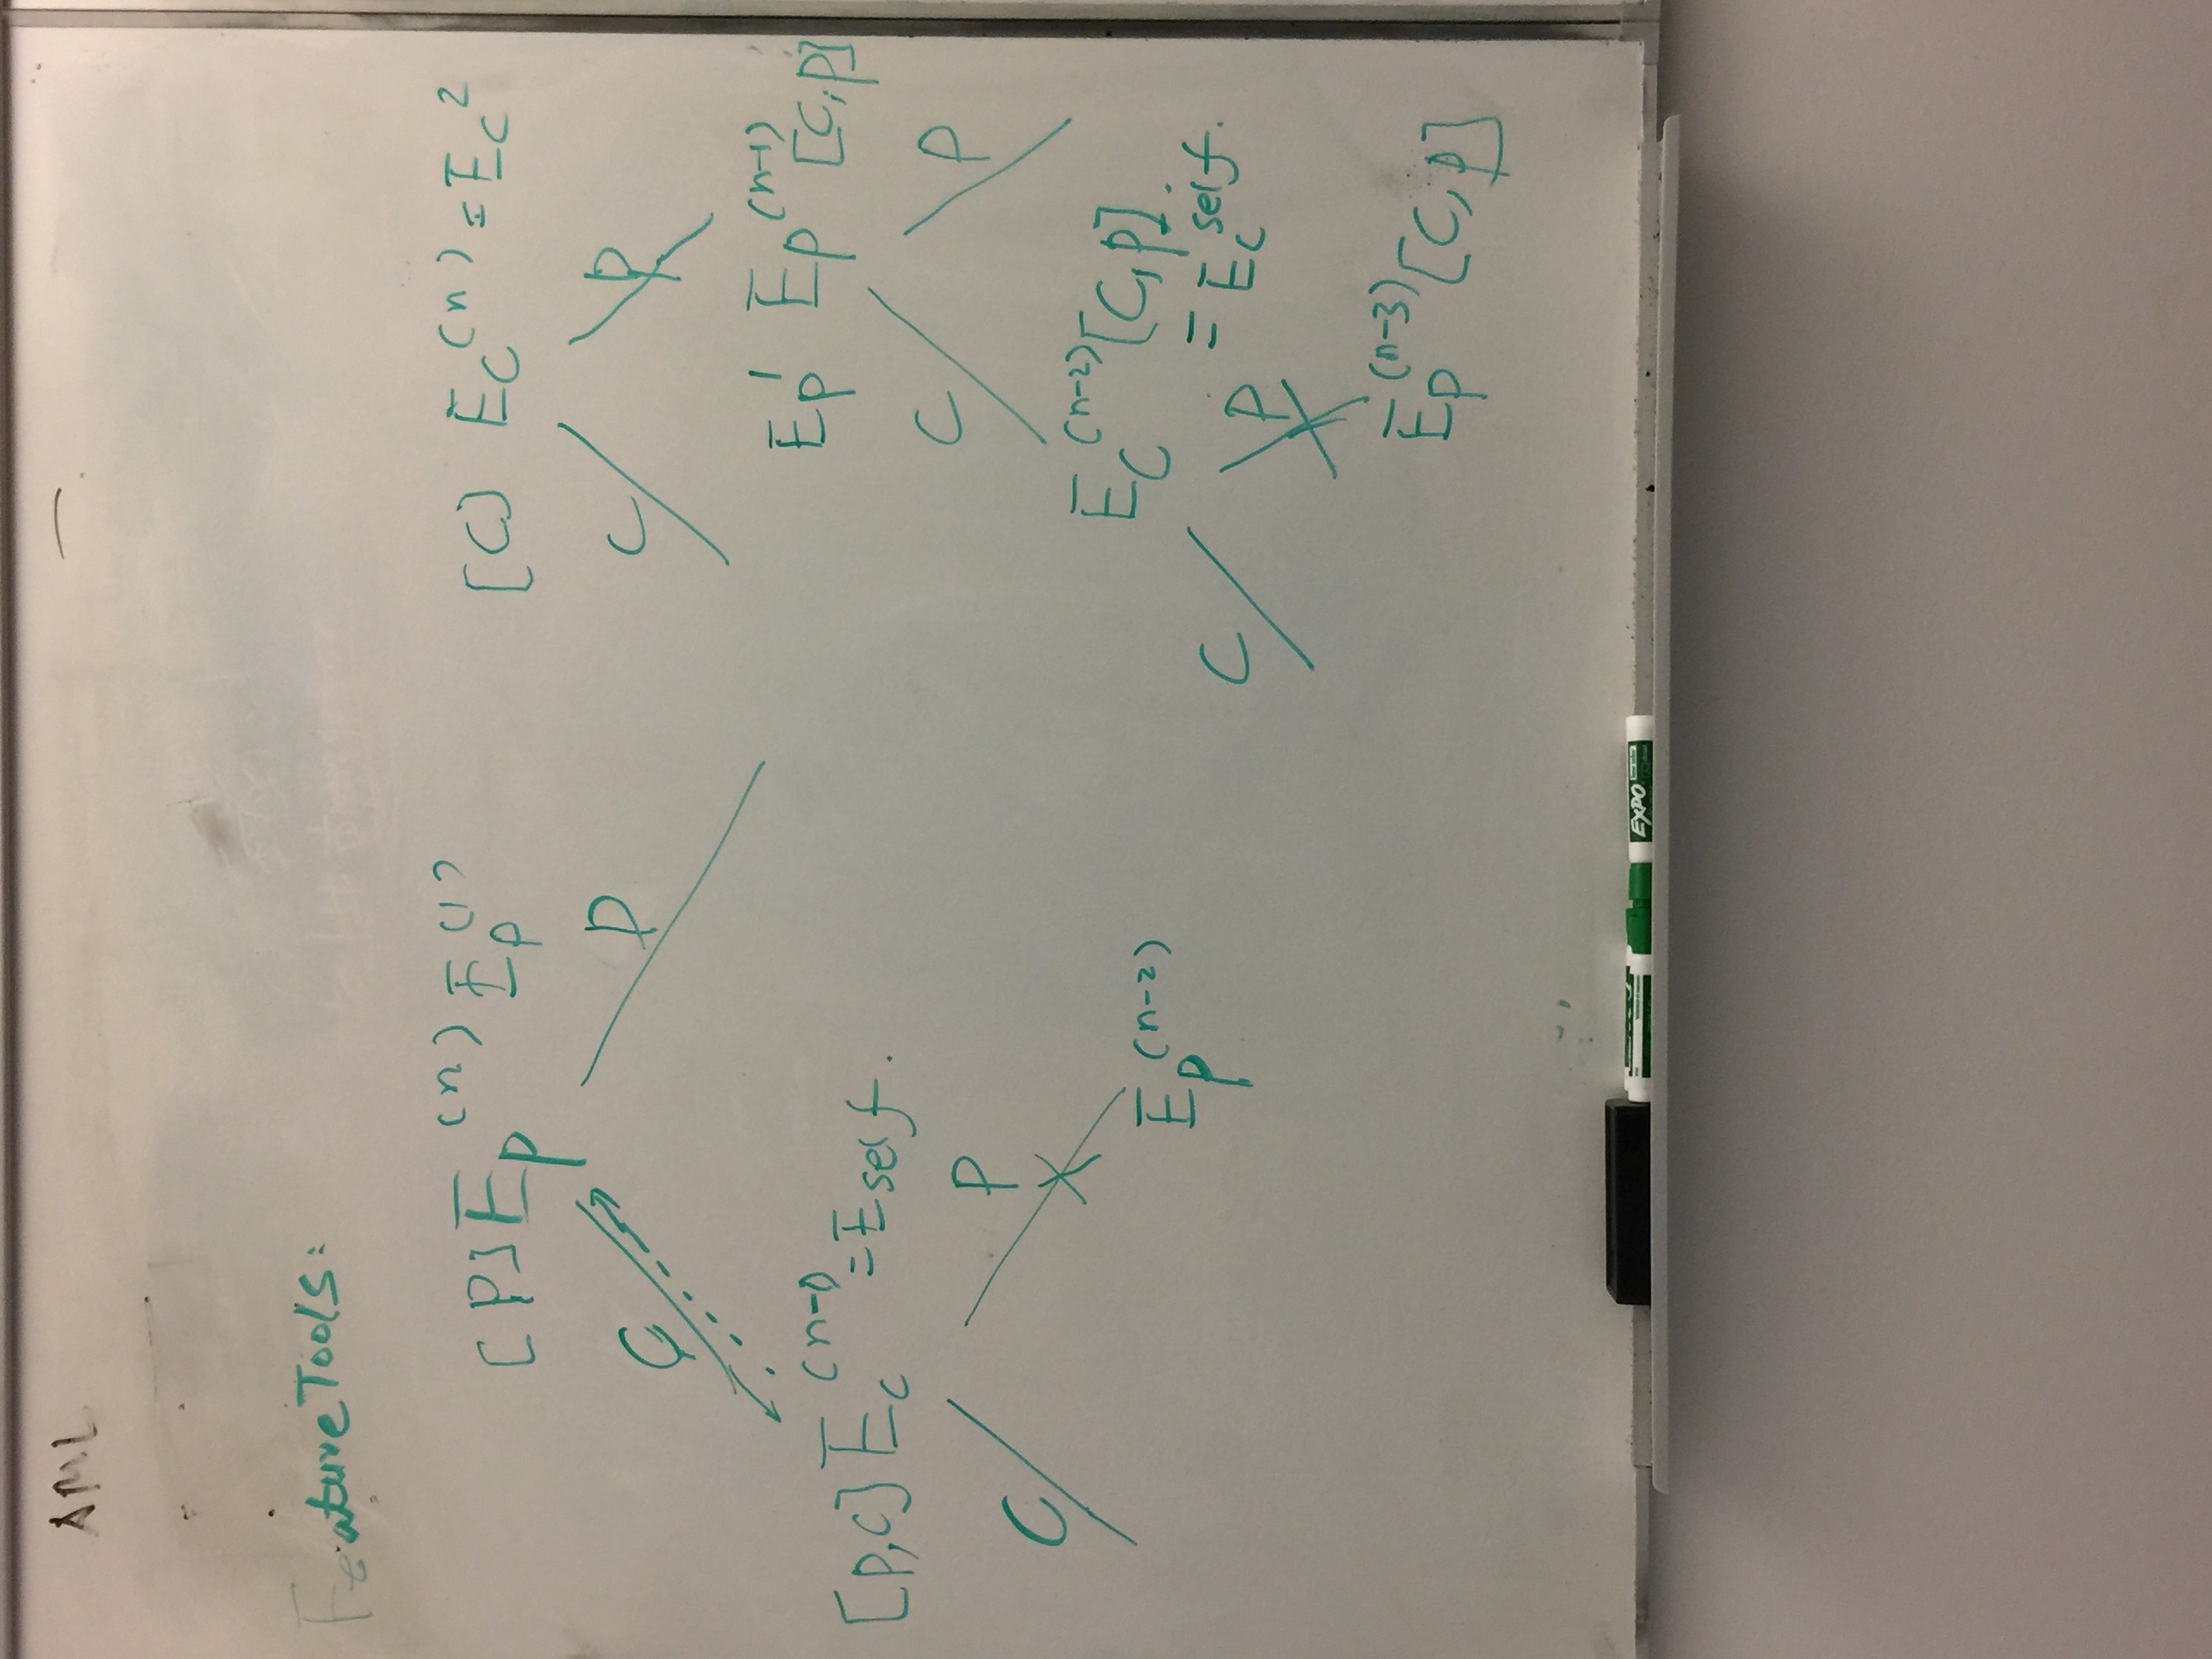 AML
FeatureTools:
[P] E_p^(n) E_p^(1)
C
P
[p,c] E_c^(n-1) = E self.
C
P
X
E_p^(n-2)
[C] E_c^(n) = E_c^2
C
P
E_p^1 E_p^(n-1) [C,p]
C
P
E_c^(n-2) [C,p].
= E_c^self.
C
P
X
E_p^(n-3) [C,p]
EXPO